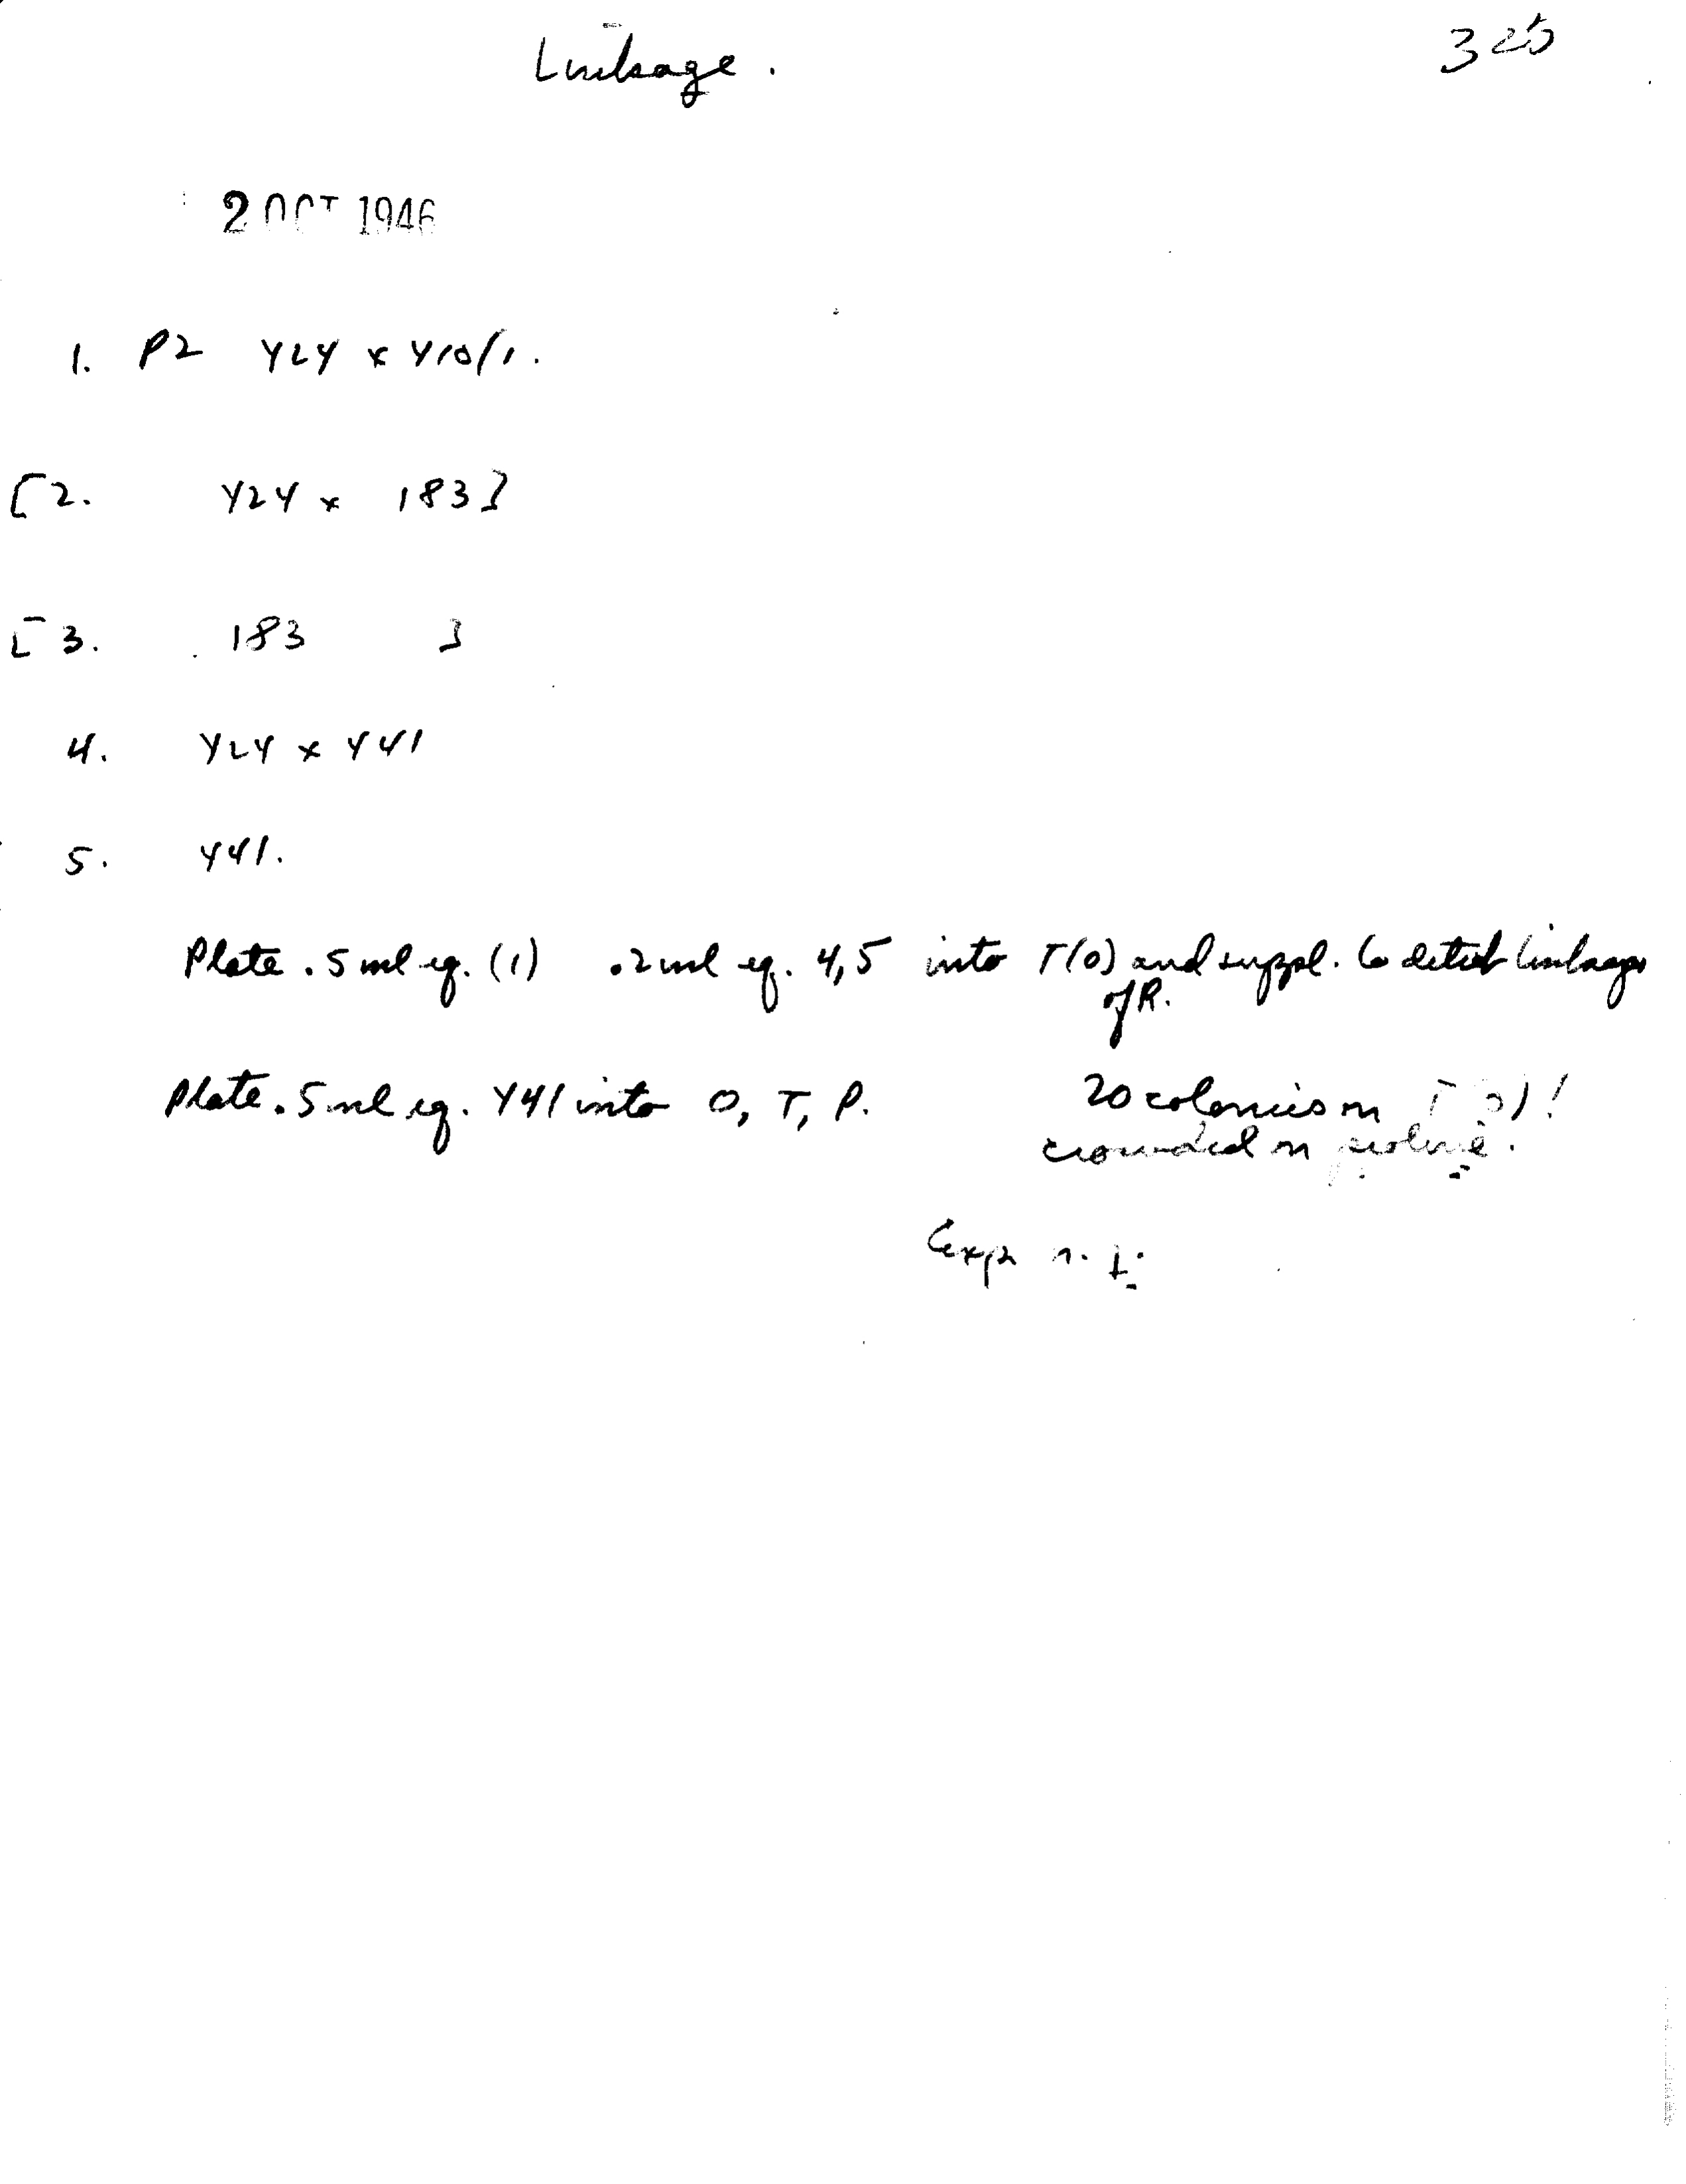 Linkage. 325
2 OCT 1946
1. P2 Y24 x Y10/1.
[2. Y24 x 183]
[3. 183 ]
4. Y24 x Y41
5. Y41.
Plate .5 ml eq. (1) .2 ml eq. 4,5 into T(0) and suppl. to detect linkage
of R.
Plate .5 ml eq. Y41 into 0, T, P. 20 colonies on T(0)!
crowded on proline.
Exp n.